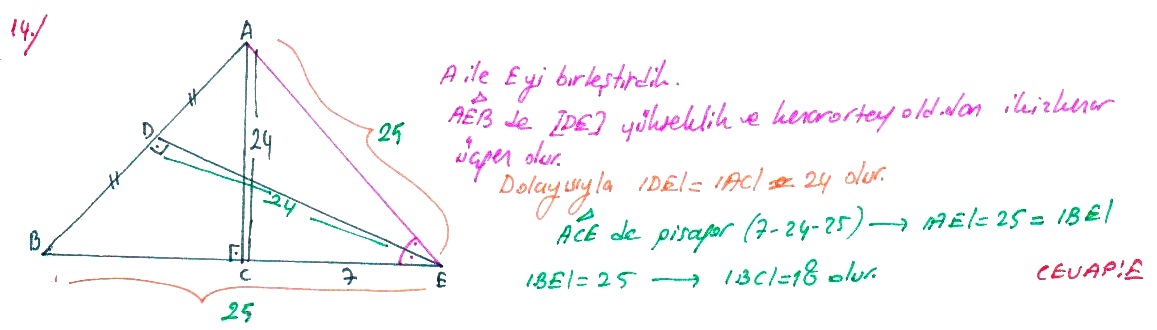 14./
A
25
H
D
24
H
24
B
C
7
E
25
A ile E yi birleştirdik.
AEB de [DE] yükseklik ve kenarortay old.dan ikizkenar
üçgen olur.
Dolayısıyla |DE| = |AC| = 24 olur.
ACE de pisagor (7-24-25) → |AE| = 25 = |BE|
|BE| = 25 → |BC| = 18 olur.
CEVAP:E